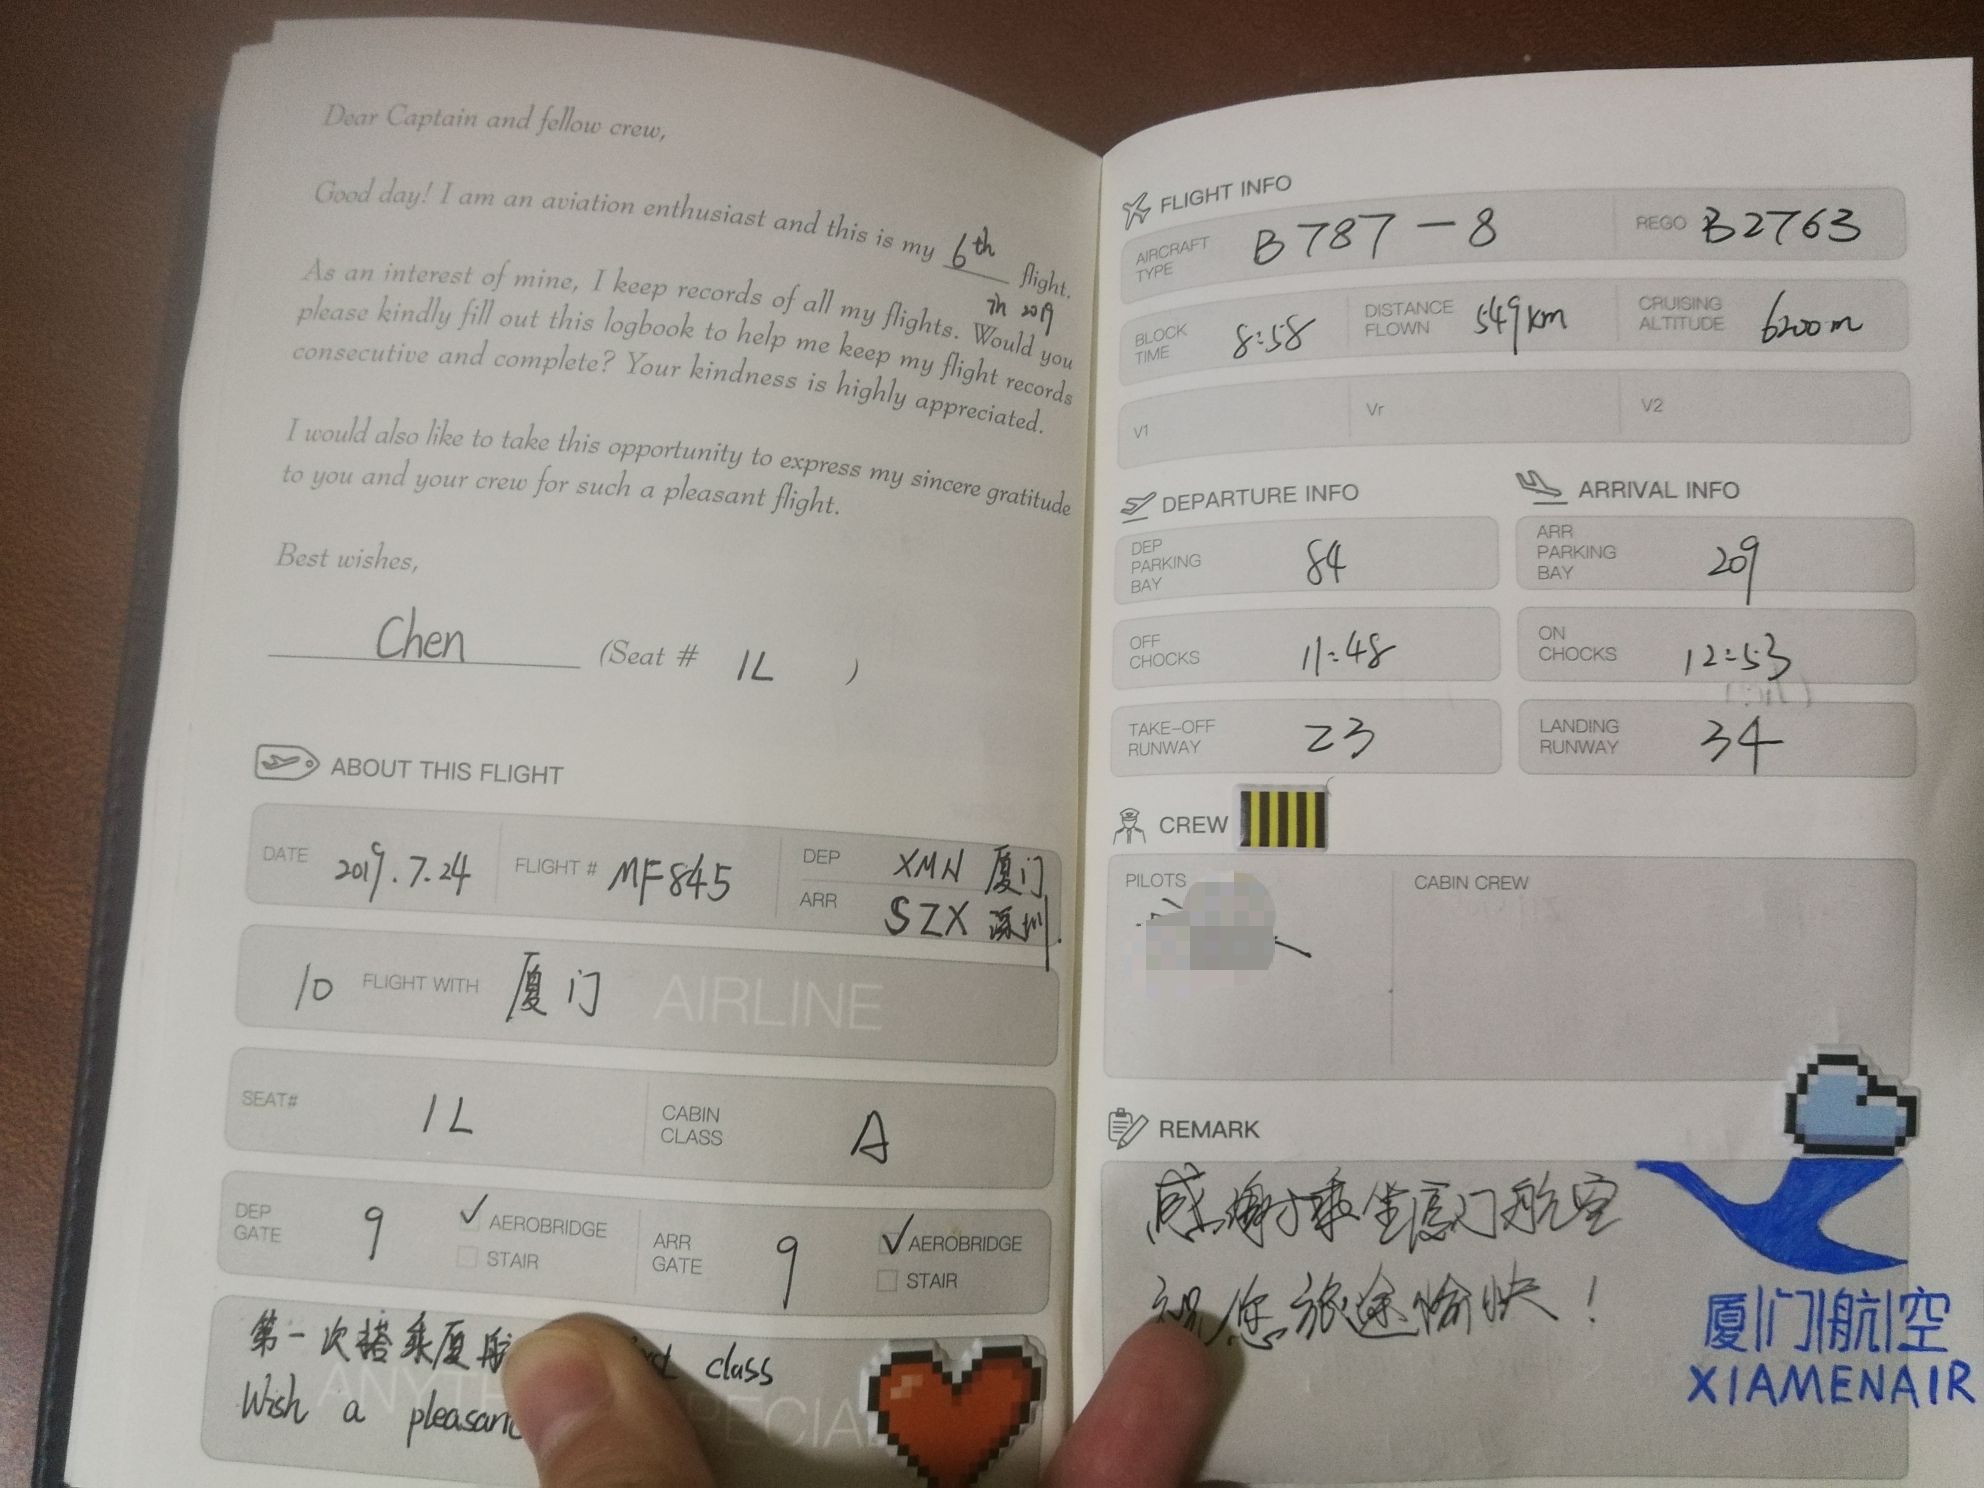 Dear Captain and fellow crew,
Good day! I am an aviation enthusiast and this is my 6th flight.
in 2019
As an interest of mine, I keep records of all my flights. Would you
please kindly fill out this logbook to help me keep my flight records
consecutive and complete? Your kindness is highly appreciated.
I would also like to take this opportunity to express my sincere gratitude
to you and your crew for such a pleasant flight.
Best wishes,
Chen (Seat # 1L )
ABOUT THIS FLIGHT
DATE 2019.7.24 FLIGHT # MF845 DEP XMN 厦门
ARR SZX 深圳.
10 FLIGHT WITH 厦门 AIRLINE
SEAT# 1L CABIN CLASS A
DEP GATE 9 AEROBRIDGE STAIR ARR GATE 9 AEROBRIDGE STAIR
第一次搭乘厦航 class
Wish a pleasant
FLIGHT INFO
AIRCRAFT TYPE B787-8 REGO B2763
BLOCK TIME 8:58 DISTANCE FLOWN 549km CRUISING ALTITUDE 6200m
V1 Vr V2
DEPARTURE INFO
DEP PARKING BAY 84
OFF CHOCKS 11:48
TAKE-OFF RUNWAY 23
ARRIVAL INFO
ARR PARKING BAY 209
ON CHOCKS 12:53
LANDING RUNWAY 34
CREW
PILOTS CABIN CREW
REMARK
感谢乘坐厦门航空
祝您旅途愉快！
厦门航空
XIAMENAIR